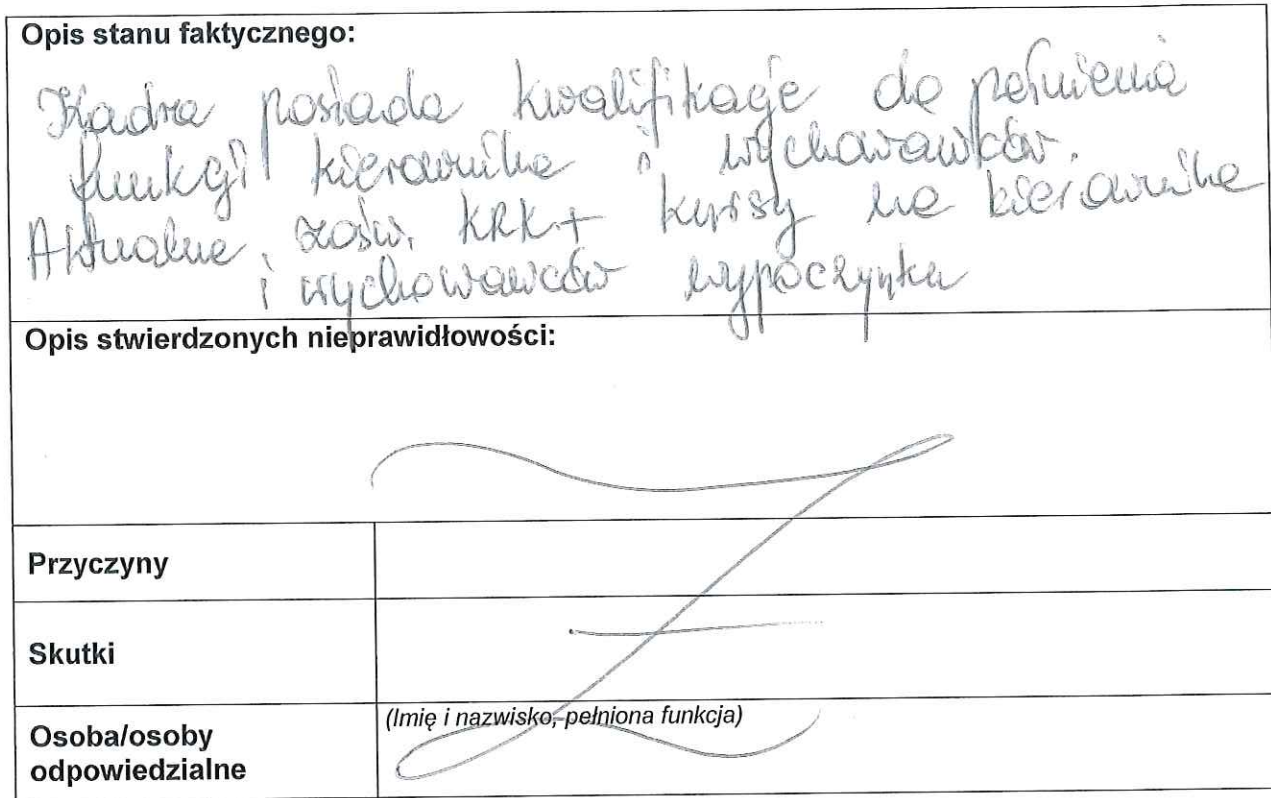 Opis stanu faktycznego:
Kadra posiada kwalifikacje do pełnienia
funkcji kierownika i wychowawców.
Aktualne zaśw. KRK + kursy na kierownika
i wychowawców wypoczynku
Opis stwierdzonych nieprawidłowości:
Przyczyny
Skutki
Osoba/osoby
odpowiedzialne
(Imię i nazwisko, pełniona funkcja)